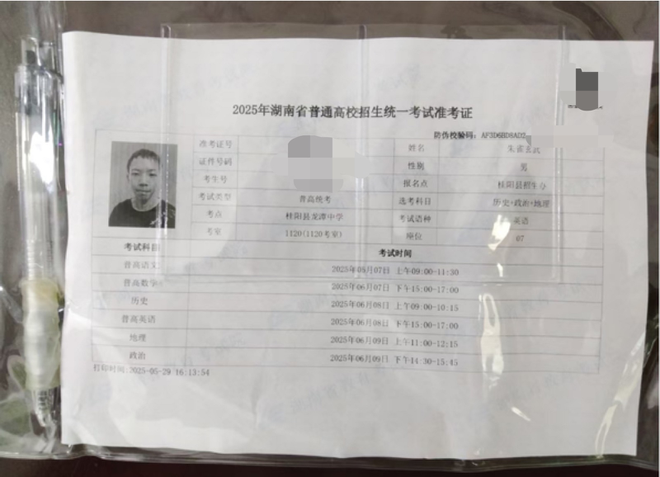 2025年湖南省普通高校招生统一考试准考证
防伪校验码：AF3D6BD8AD2
准考证号 姓名 朱雀玄武
证件号码 性别 男
考生号 报名点 桂阳县招生办
考试类型 普高统考 选考科目 历史+政治+地理
考点 桂阳县龙潭中学 考试语种 英语
考室 1120(1120考室) 座位 07
考试科目 考试时间
普高语文 2025年06月07日 上午09:00-11:30
普高数学 2025年06月07日 下午15:00-17:00
历史 2025年06月08日 上午09:00-10:15
普高英语 2025年06月08日 下午15:00-17:00
地理 2025年06月09日 上午11:00-12:15
政治 2025年06月09日 下午14:30-15:45
打印时间:2025-05-29 16:13:54